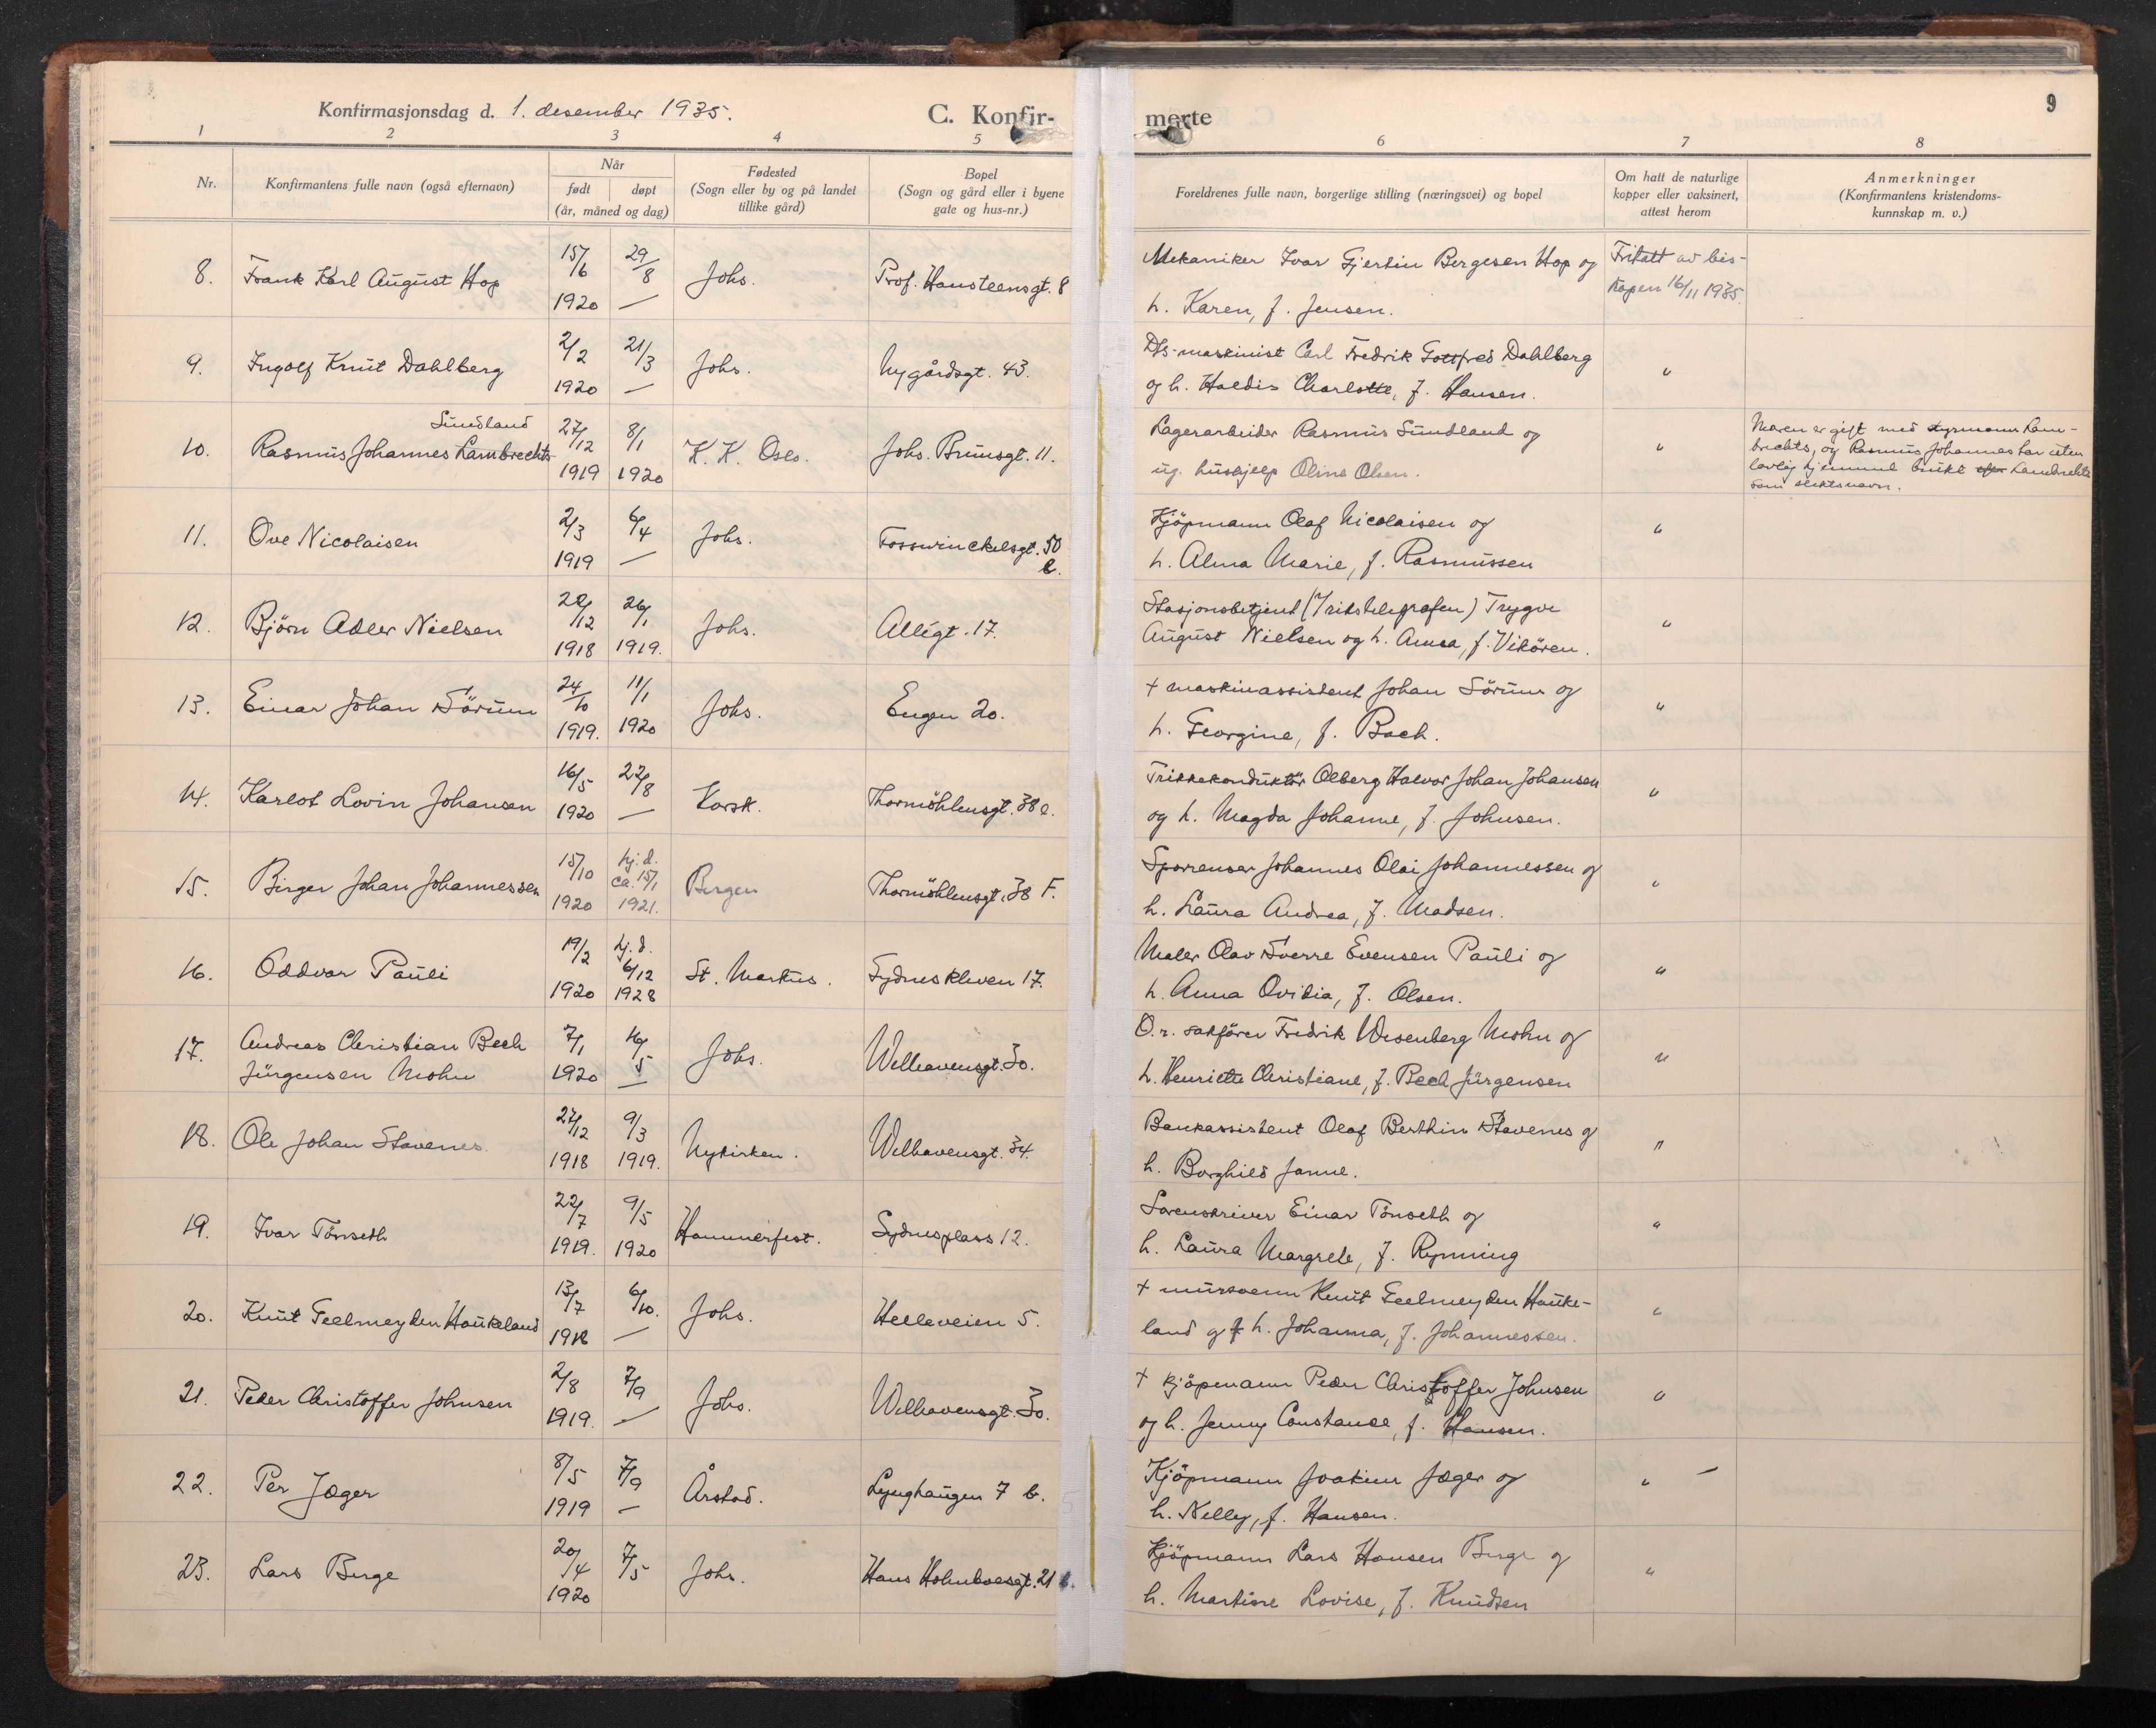 Konfirmasjonsdag d. 1. desember 1935.
C. Konfir-
merte
9
1 2 3 4 5 6 7 8
Nr.
Konfirmantens fulle navn (også efternavn)
Når
født døpt
(år, måned og dag)
Fødested
(Sogn eller by og på landet
tillike gård)
Bopel
(Sogn og gård eller i byene
gate og hus-nr.)
Foreldrenes fulle navn, borgerlige stilling (næringsvei) og bopel
Om hatt de naturlige
kopper eller vaksinert,
attest herom
Anmerkninger
(Konfirmantens kristendoms-
kunnskap m. v.)
8. Frank Karl August Hop 15/6 1920 29/8 — Johs. Prof. Hansteensgt. 8
Mekaniker Ivar Gjertin Bergesen Hop og
h. Karen, f. Jensen.
Fritatt av bis-
kopen 16/11 1935.
9. Ingolf Knut Dahlberg 2/2 1920 21/3 — Johs. Nygårdsgt. 43.
D/s-maskinist Carl Fredrik Gottfred Dahlberg
og h. Haldis Charlotte, f. Hansen.
"
10. Rasmus Johannes Lambrechts Sundland 27/12 1919 8/1 1920 K. K. Oslo. Johs. Brunsgt. 11.
Lagerarbeider Rasmus Sundland og
ug. hushjelp Oline Olsen.
"
Moren er gift med styrmann Lam-
brechts, og Rasmus Johannes har uten
lovlig hjemmel brukt Lambrechts
som slektsnavn.
11. Ove Nicolaisen 2/3 1919 6/4 — Johs. Fosswinckelsgt. 50 b.
Kjöpmann Olaf Nicolaisen og
h. Alma Marie, f. Rasmussen
"
12. Björn Adler Nielsen 28/12 1918 26/1 1919. Johs. Allégt. 17.
Stasjonsbetjent (v/rikstelegrafen) Trygve
August Nielsen og h. Anna, f. Vikören.
"
13. Einar Johan Sörum 24/10 1919. 11/1 1920 Johs. Engen 20.
+ maskinassistent Johan Sörum og
h. Georgine, f. Bach.
"
14. Karlot Lovin Johansen 16/5 1920 22/8 — Korsk. Thormöhlensgt. 38 e.
Trikkekonduktör Olberg Halvor Johan Johansen
og h. Magda Johanne, f. Johnsen.
"
15. Birger Johan Johannessen 15/10 1920 hj. d. ca. 15/1 1921. Bergen Thormöhlensgt. 38 F.
Sporrenser Johannes Olai Johannessen og
h. Laura Andrea, f. Madsen.
"
16. Oddvar Pauli 19/2 1920 hj. d. 6/12 1928 St. Markus. Sydneskleven 17.
Maler Olav Sverre Evensen Pauli og
h. Anna Ovidia, f. Olsen.
"
17. Andreas Christian Bech
Jürgensen Mohn 7/1 1920 16/5 — Johs. Welhavensgt. 30.
O.r. sakförer Fredrik Wesenberg Mohn og
h. Henriette Christiane, f. Bech Jürgensen
"
18. Ole Johan Stavenes 27/12 1918 9/3 1919. Nykirken. Welhavensgt. 34.
Bankassistent Olaf Berthin Stavenes og
h. Borghild Janne.
"
19. Ivar Tönseth 22/7 1919. 9/5 1920 Hammerfest. Sydnesplass 12.
Sorenskriver Einar Tönseth og
h. Laura Margrete, f. Rynning
"
20. Knut Geelmeyden Haukeland 13/7 1918 6/10. — Johs. Helleveien 5.
+ mursvenn Knut Geelmeyden Hauke-
land og h. Johanna, f. Johannessen.
"
21. Peder Christoffer Johnsen 2/8 1919. 7/9 — Johs. Welhavensgt. 30.
+ kjöpmann Peder Christoffer Johnsen
og h. Jenny Constanse, f. Hansen.
"
22. Per Jæger 8/5 1919 7/9 — Årstad. Lynghaugen 7 b.
Kjöpmann Joakim Jæger og
h. Nelly, f. Hansen.
"
23. Lars Berge 20/4 1920 7/5 Johs. Hans Holmboesgt. 21
Kjöpmann Lars Hansen Berge og
h. Martine Lovise, f. Knudsen
"